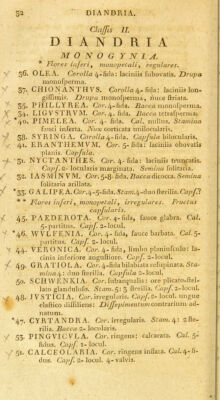 52 DIANDRIA.
Classis II.
DIANDRIA
MONOGYNIA.
* Flores inferi, monopetali, regulares.
36. OLEA. Corolla 4-fida: laciniis subovatis. Drupa
monosperma.
37. CHIONANTHUS. Corolla 4-fida: laciniis lon-
gissimis. Drupa monosperma, nuce striata.
35. PHILLYREA. Cor. 4-fida. Bacca monosperma.
34. LIGVSTRVM. Cor. 4-fida. Bacca tetrasperma.
40. PIMELEA. Cor. 4-fida. Cal. nullus. Stamina
fauci inserta. Nux corticata unilocularis.
38. SYRINGA. Corolla 4-fida. Capsula bilocularis.
41. ERANTHEMVM. Cor. 5-fida: laciniis obovatis
planis. Capsula.
31. NYCTANTHES. Cor. 4-fida: laciniis truncatis.
Caps. 2-locularis marginata. Semina solitaria.
32. IASMINVM. Cor. 5-8 fida. Bacca dicocca. Semina
solitaria arillata.
*33. GALIPEA. Cor. 4-5-fida. Stam. 4-duo sterilia. Caps.?
** Flores inferi, monopetali, irregulares. Fructus
capsularis.
45. PAEDEROTA. Cor. 4-fida, fauce glabra. Cal.
5-partitus. Caps. 2-locul.
*46. WULFENIA. Cor. 4-fida, fauce barbata. Cal. 5-
partitus. Caps. 2-locul.
44. VERONICA. Cor. 4-fida, limbo planiuscula: la-
cinia inferiore angustiore. Caps. 2-locul.
49. GRATIOLA. Cor. 4-fida bilabiata resupinata. Sta-
mina 4: duo sterilia. Capsula 2-locul.
50. SCHWENKIA. Cor. subaequalis: ore plicato-stel-
lato glandulosis. Stam. 5: 3 sterilia. Caps. 2-locul.
48. IVSTICIA. Cor. irregularis. Caps. 2-locul. ungue
elastico dissiliens: Dissepimentum contrarium ad-
natum.
*47. CYRTANDRA. Cor. irregularis. Stam. 4: 2 ste-
rilia. Bacca 2-locularis.
53. PINGVICVLA. Cor. ringens: calcarata. Cal. 5-
fidus. Caps. 1-locul.
51. CALCEOLARIA. Cor. ringens inflata. Cal. 4-fi-
dus. Caps. 2-locul. 4-valvis.